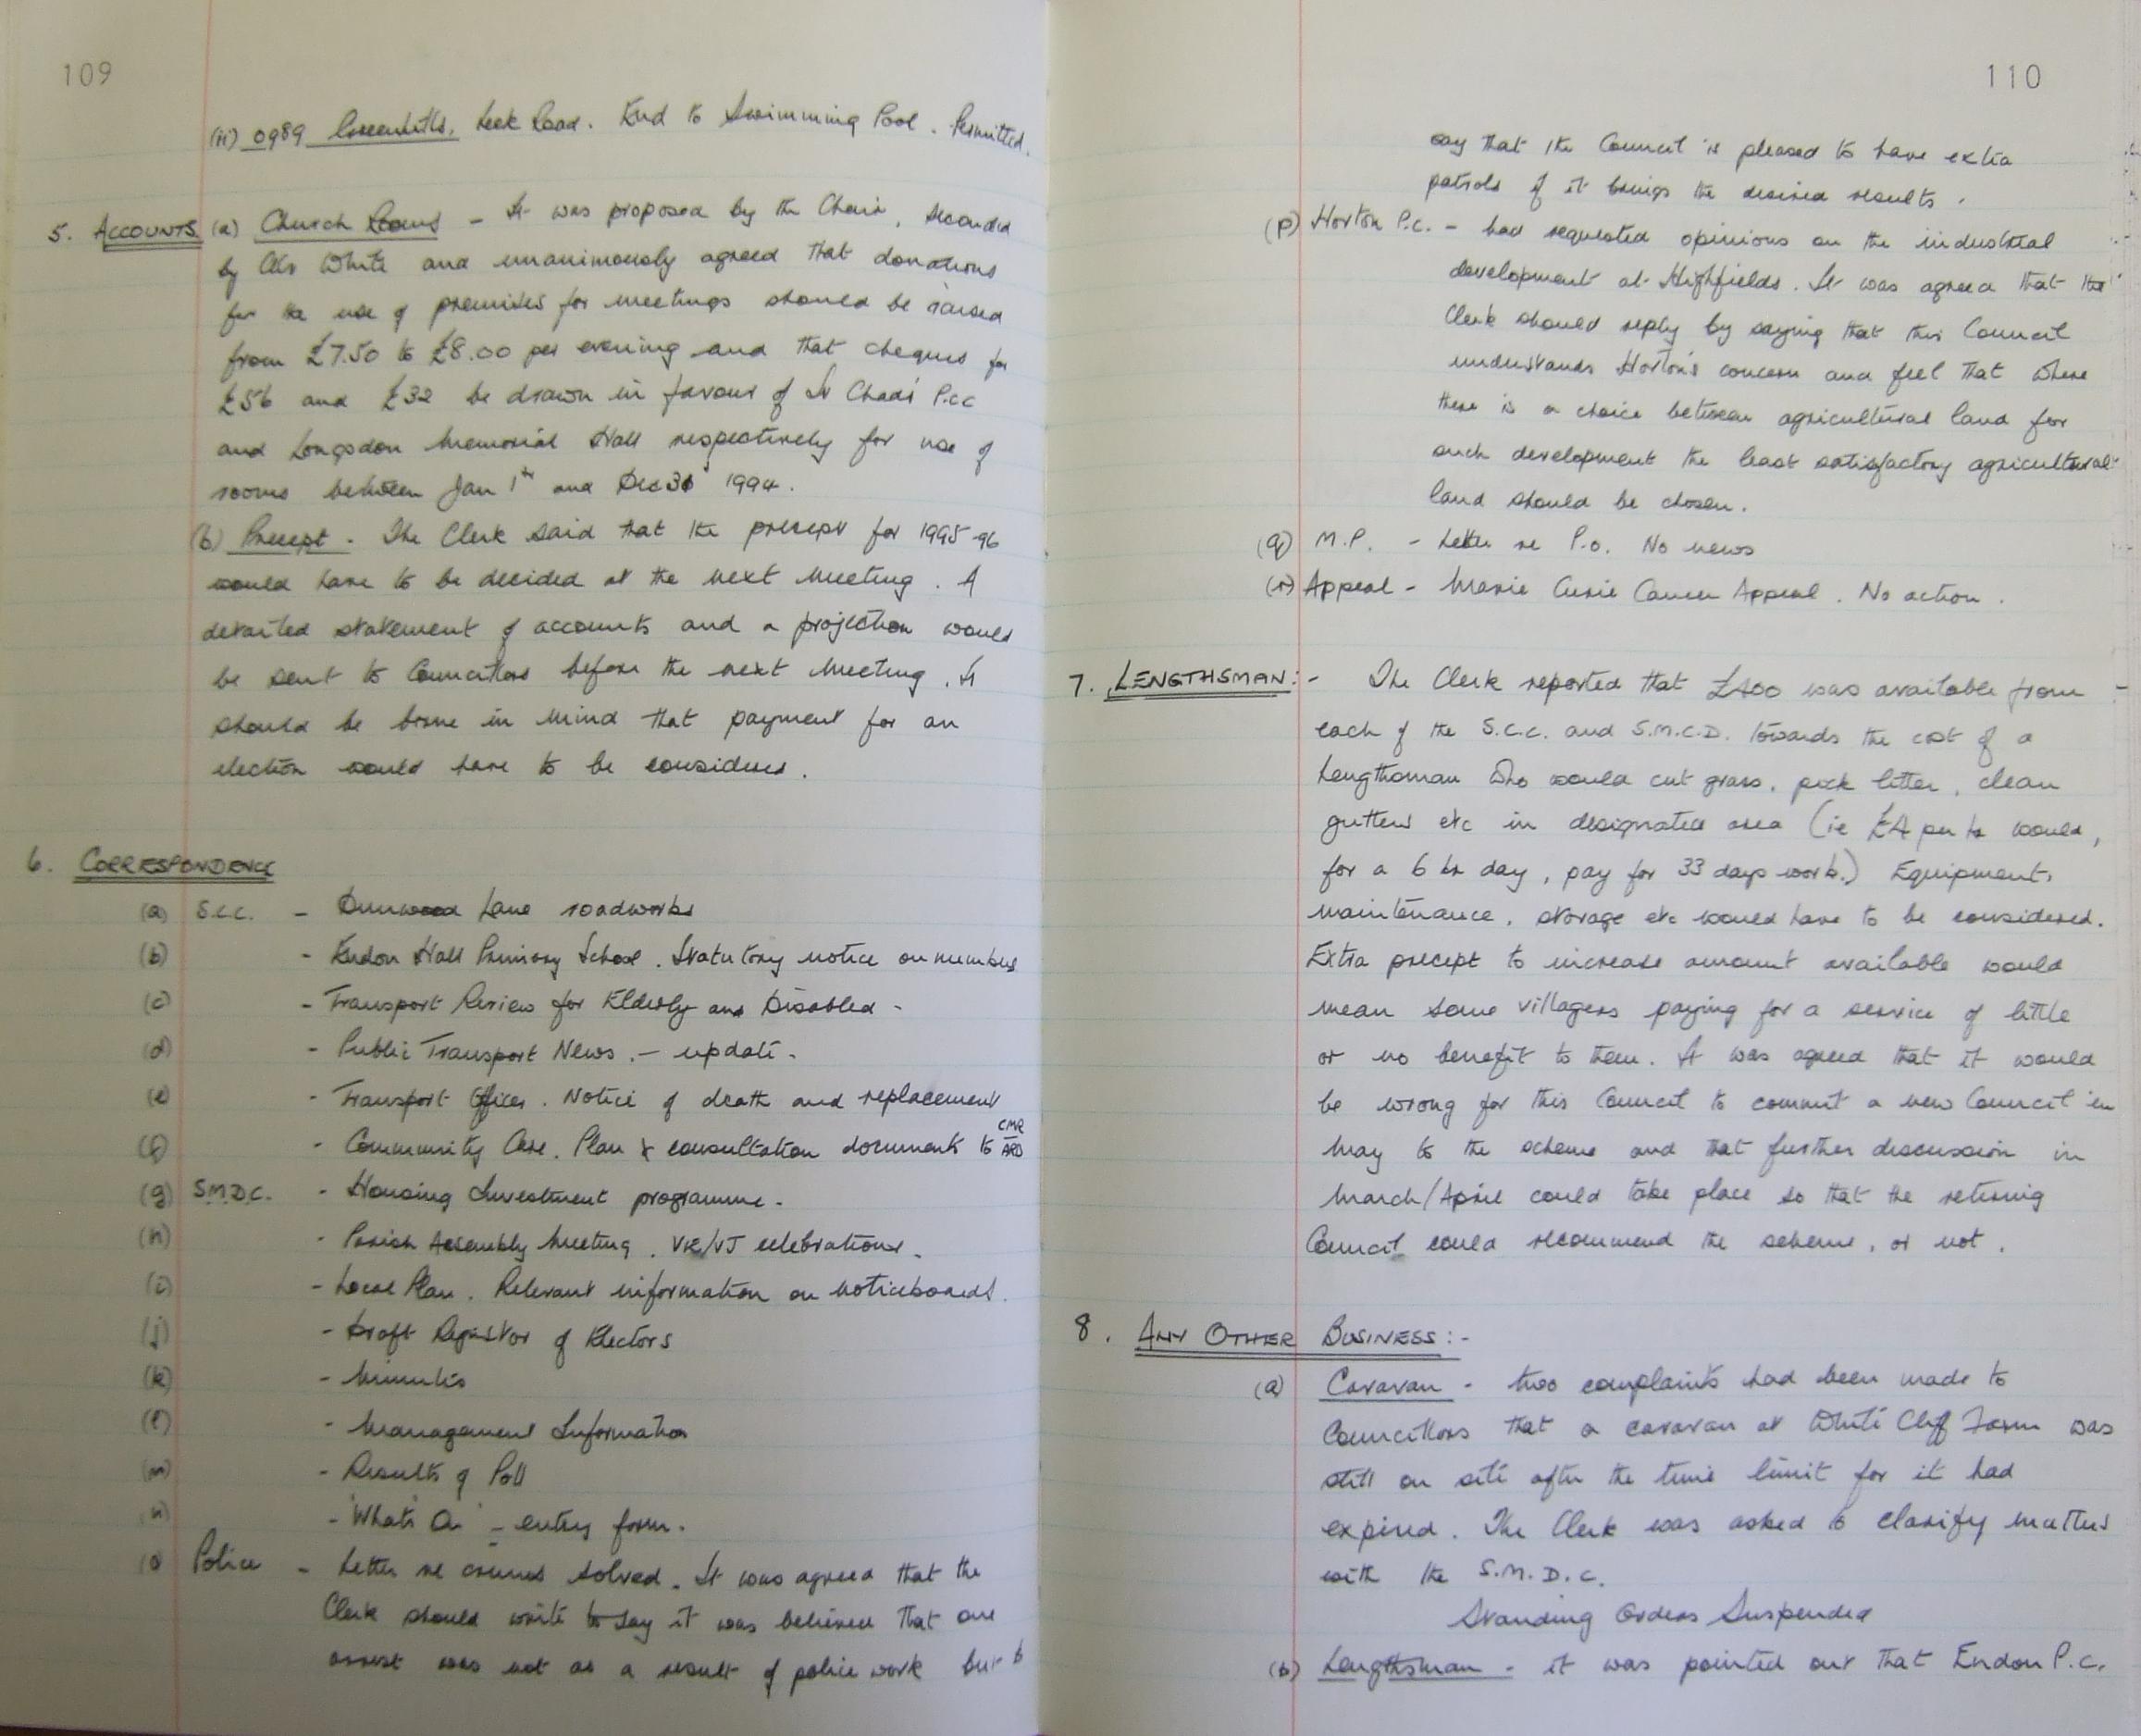 109
(ii) 0989 Greenhills, Leek Road. End to Swimming Pool. Permitted.
5. ACCOUNTS (a) Church Rooms - It was proposed by the Chair, seconded
by Cllr White and unanimously agreed that donations
for the use of premises for meetings should be raised
from £7.50 to £8.00 per evening and that cheques for
£56 and £32 be drawn in favour of St Chad's P.C.C
and Longsdon Memorial Hall respectively for use of
rooms between Jan 1st and Dec 31st 1994.
(b) Precept. The Clerk said that the precept for 1995-96
would have to be decided at the next Meeting. A
detailed statement of accounts and a projection would
be sent to Councillors before the next Meeting. It
should be borne in mind that payment for an
election would have to be considered.
6. CORRESPONDENCE
(a) S.C.C. - Dunwood Lane roadworks
(b) - Endon Hall Primary School. Statutory notice on numbers
(c) - Transport Review for Elderly and Disabled -
(d) - Public Transport News. - update.
(e) - Transport Officer. Notice of death and replacement
(f) - Community Care. Plan & consultation documents to CMR ARD
(g) S.M.D.C. - Housing Investment programme.
(h) - Parish Assembly Meeting. VE/VJ celebrations.
(i) - Local Plan. Relevant information on noticeboards.
(j) - Draft Register of Electors
(k) - Minutes
(l) - Management Information
(m) - Results of Poll
(n) - 'What's On' - entry form.
(o) Police - Letter re crimes solved. It was agreed that the
Clerk should write to say it was believed that one
arrest was not as a result of police work but to
110
say that the Council is pleased to have extra
patrols if it brings the desired results.
(p) Horton P.C. - had requested opinions on the industrial
development at Highfields. It was agreed that the
Clerk should reply by saying that this Council
understands Horton's concern and feel that where
there is a choice between agricultural land for
such development the least satisfactory agricultural
land should be chosen.
(q) M.P. - Letter re P.O. No news
(r) Appeal - Marie Curie Cancer Appeal. No action.
7. LENGTHSMAN:- The Clerk reported that £400 was available from
each of the S.C.C. and S.M.C.D. towards the cost of a
Lengthsman who would cut grass, pick litter, clean
gutters etc in designated area (ie £4 per hr would,
for a 6 hr day, pay for 33 days work.) Equipment,
maintenance, storage etc would have to be considered.
Extra precept to increase amount available would
mean some villagers paying for a service of little
or no benefit to them. It was agreed that it would
be wrong for this Council to commit a new Council in
May to the scheme and that further discussion in
March/April could take place so that the retiring
Council could recommend the scheme, or not.
8. ANY OTHER BUSINESS:-
(a) Caravan - two complaints had been made to
Councillors that a caravan at White Cliff Farm was
still on site after the time limit for it had
expired. The Clerk was asked to clarify matters
with the S.M.D.C.
Standing Orders Suspended
(b) Lengthsman - it was pointed out that Endon P.C.